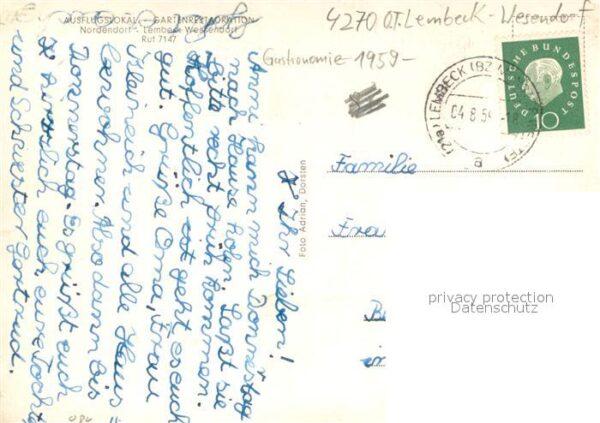 AUSFLUGSLOKAL - GARTENRESTAURATION
Nordendorf - Lembeck-Wessendorf
Ruf 7147
4270 O.T. Lembeck-Wesendorf
Gastronomie 1959-
DEUTSCHE BUNDESPOST
10
(21a) LEMBECK (BZ
04.8.59
a
Familie
Frau
Foto Adrian, Dorsten
Ihr Lieben!
Anni kann mich Donnerstag
nach Hause holen. Laßt sie
bitte recht früh kommen.
Hoffentlich ist geht es euch
gut. Grüße Oma, Frau
und alle Haus
bewohner. Also dann bis
Donnerstag. Es grüßt euch
herzlich auch eure Tochter
und Schwester Gertrud.
privacy protection
Datenschutz